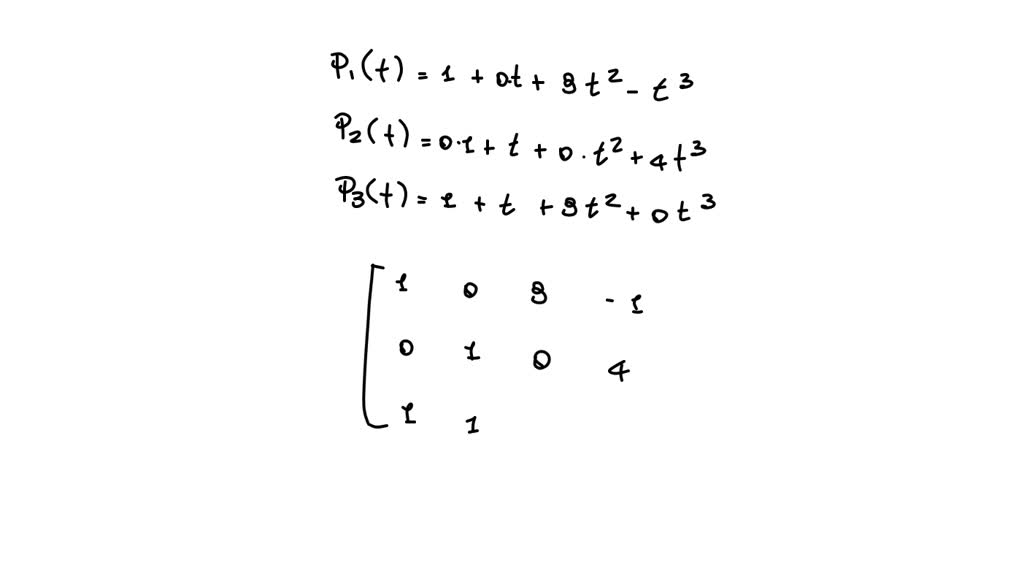 P₁(t) = 1 + 0.t + 8t² - t³
P₂(t) = 0·1 + t + 0·t² + 4t³
P₃(t) = 1 + t + 8t² + 0t³
1 0 8 -1
0 1 0 4
1 1